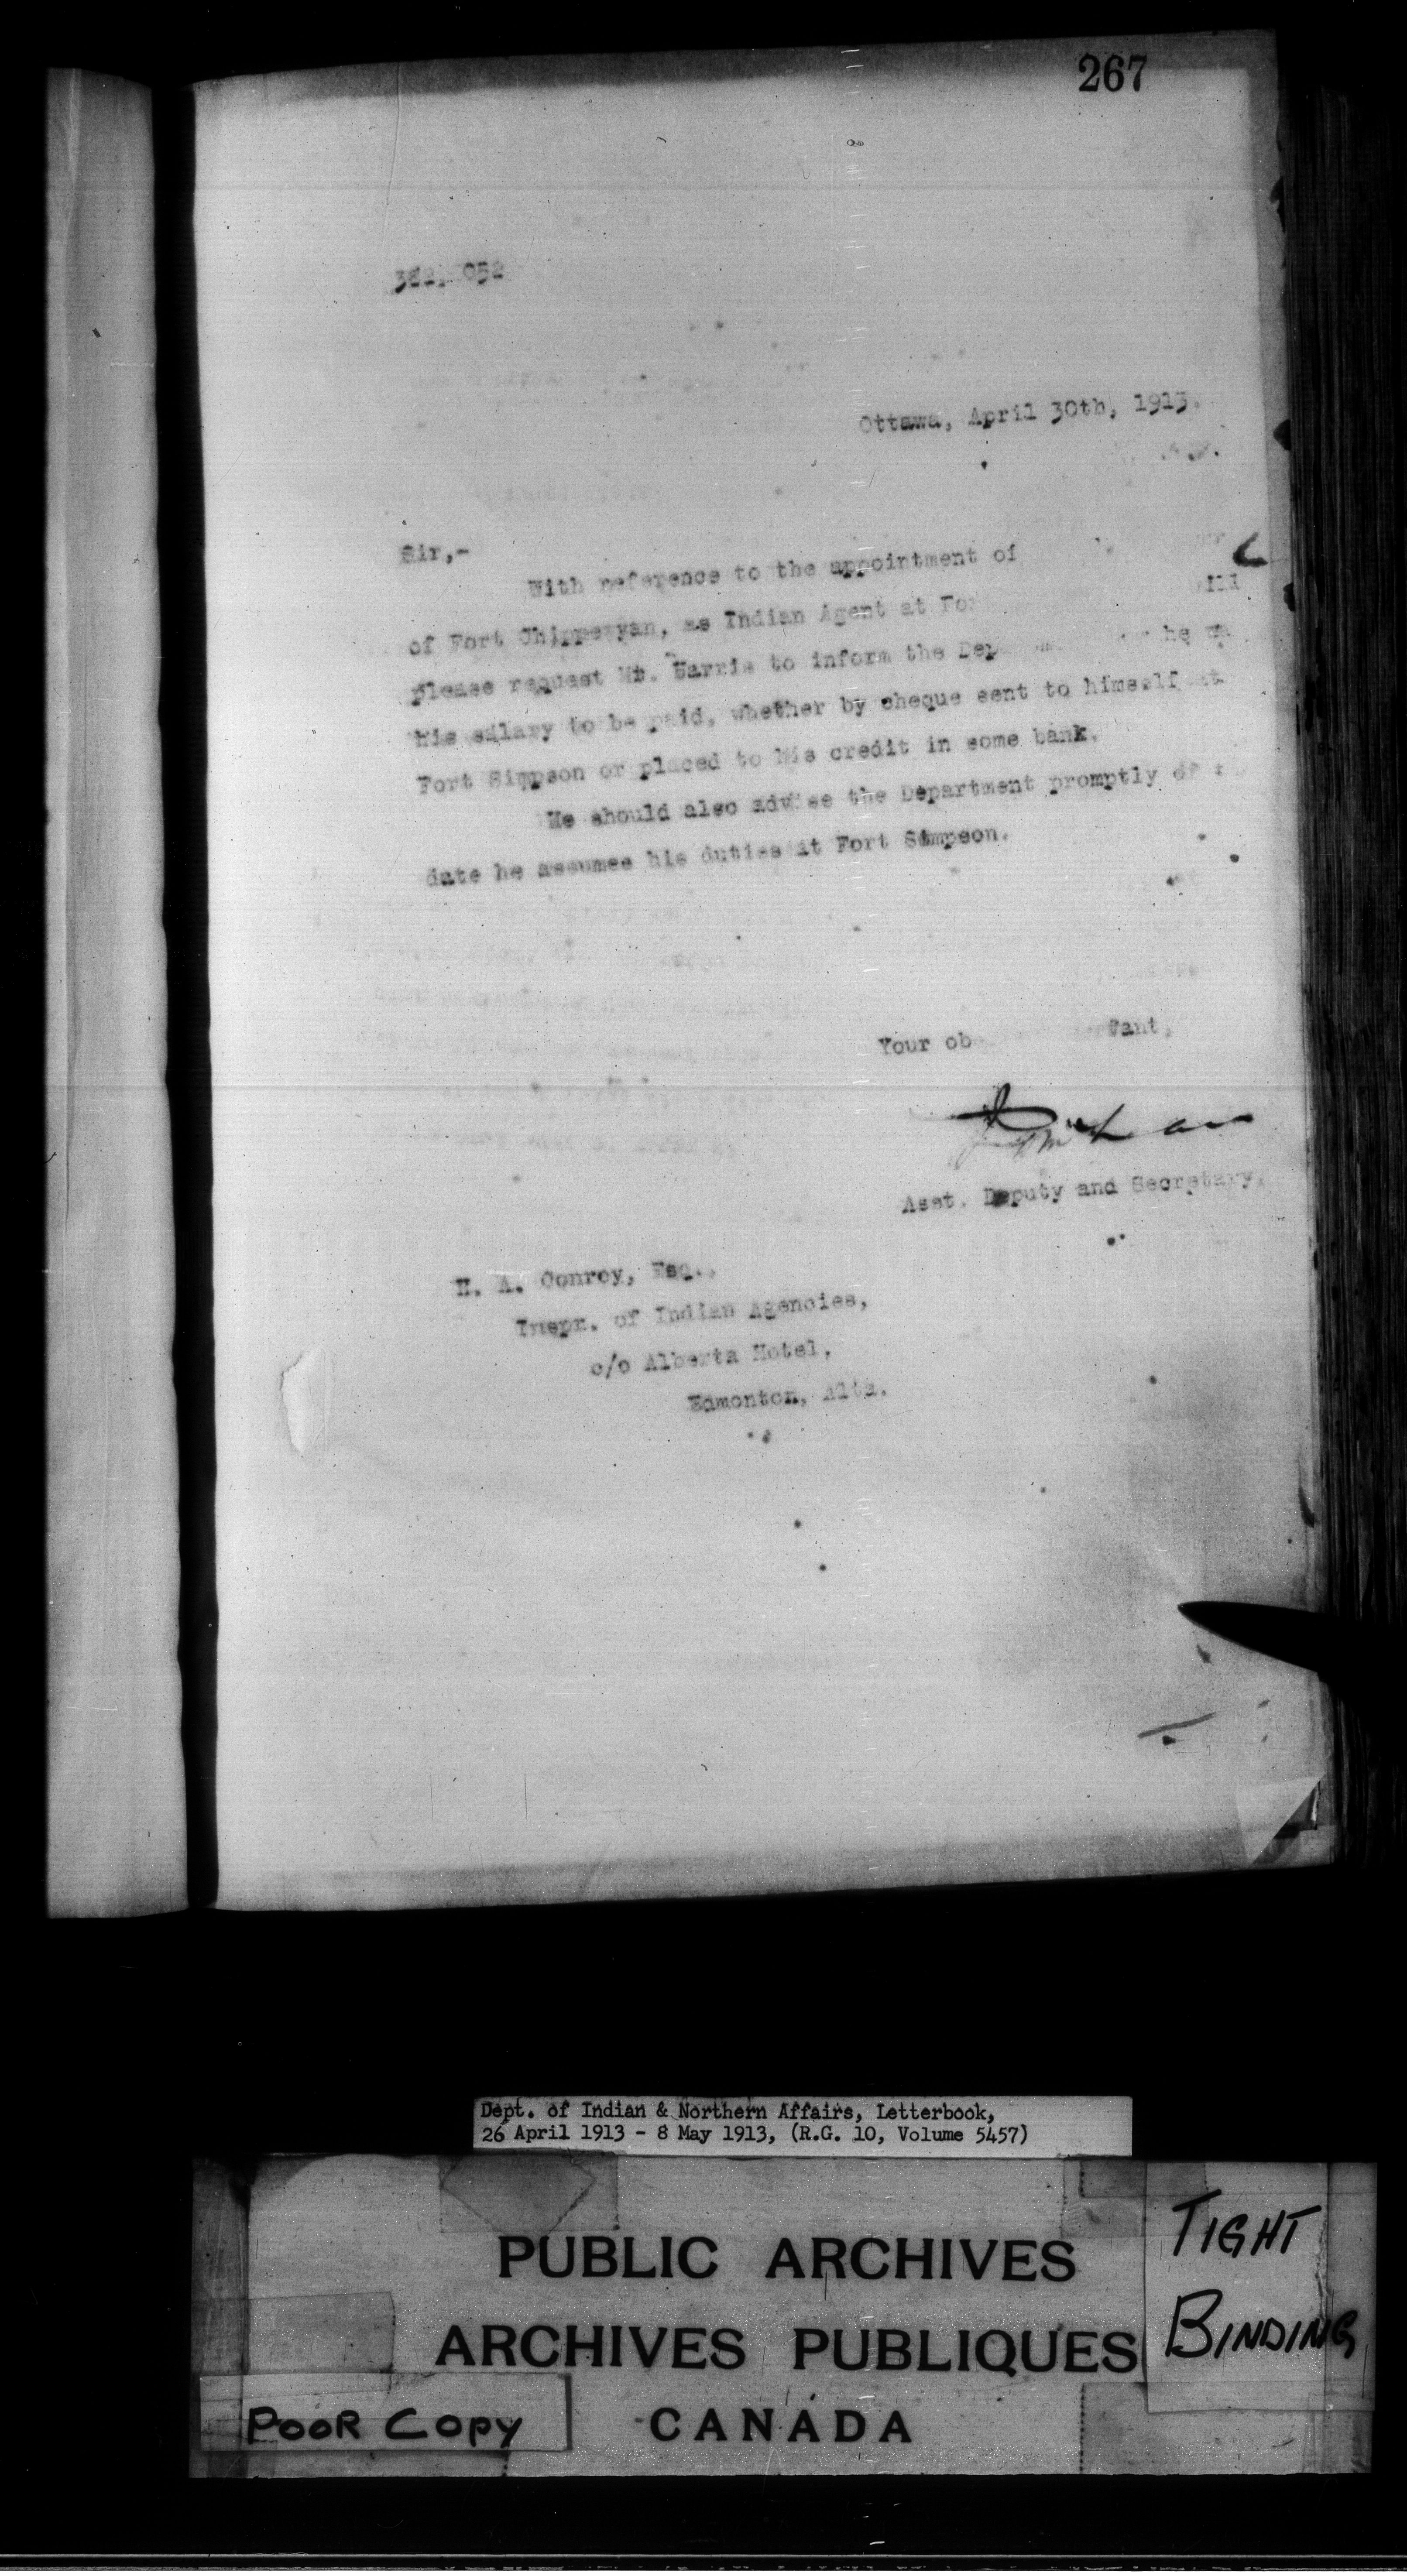 267
Ottawa, April 30th, 1913.
Sir,-
With reference to the appointment of
of Fort Chippewyan, as Indian Agent at
please request Mr. Harris to inform the he
his salary to be paid, whether by cheque sent to himself at
Fort Simpson or placed to his credit in some bank.
He should also advise the Department promptly of
date he assumes his duties at Fort Simpson.
Your
Asst. Deputy and Secretary.
H. A. Conroy, Esq.,
Inspr. of Indian Agencies,
c/o Alberta Hotel,
Edmonton, Alta.
Dept. of Indian & Northern Affairs, Letterbook,
26 April 1913 - 8 May 1913, (R.G. 10, Volume 5457)
PUBLIC ARCHIVES
ARCHIVES PUBLIQUES
CANADA
TIGHT
BINDING
POOR COPY